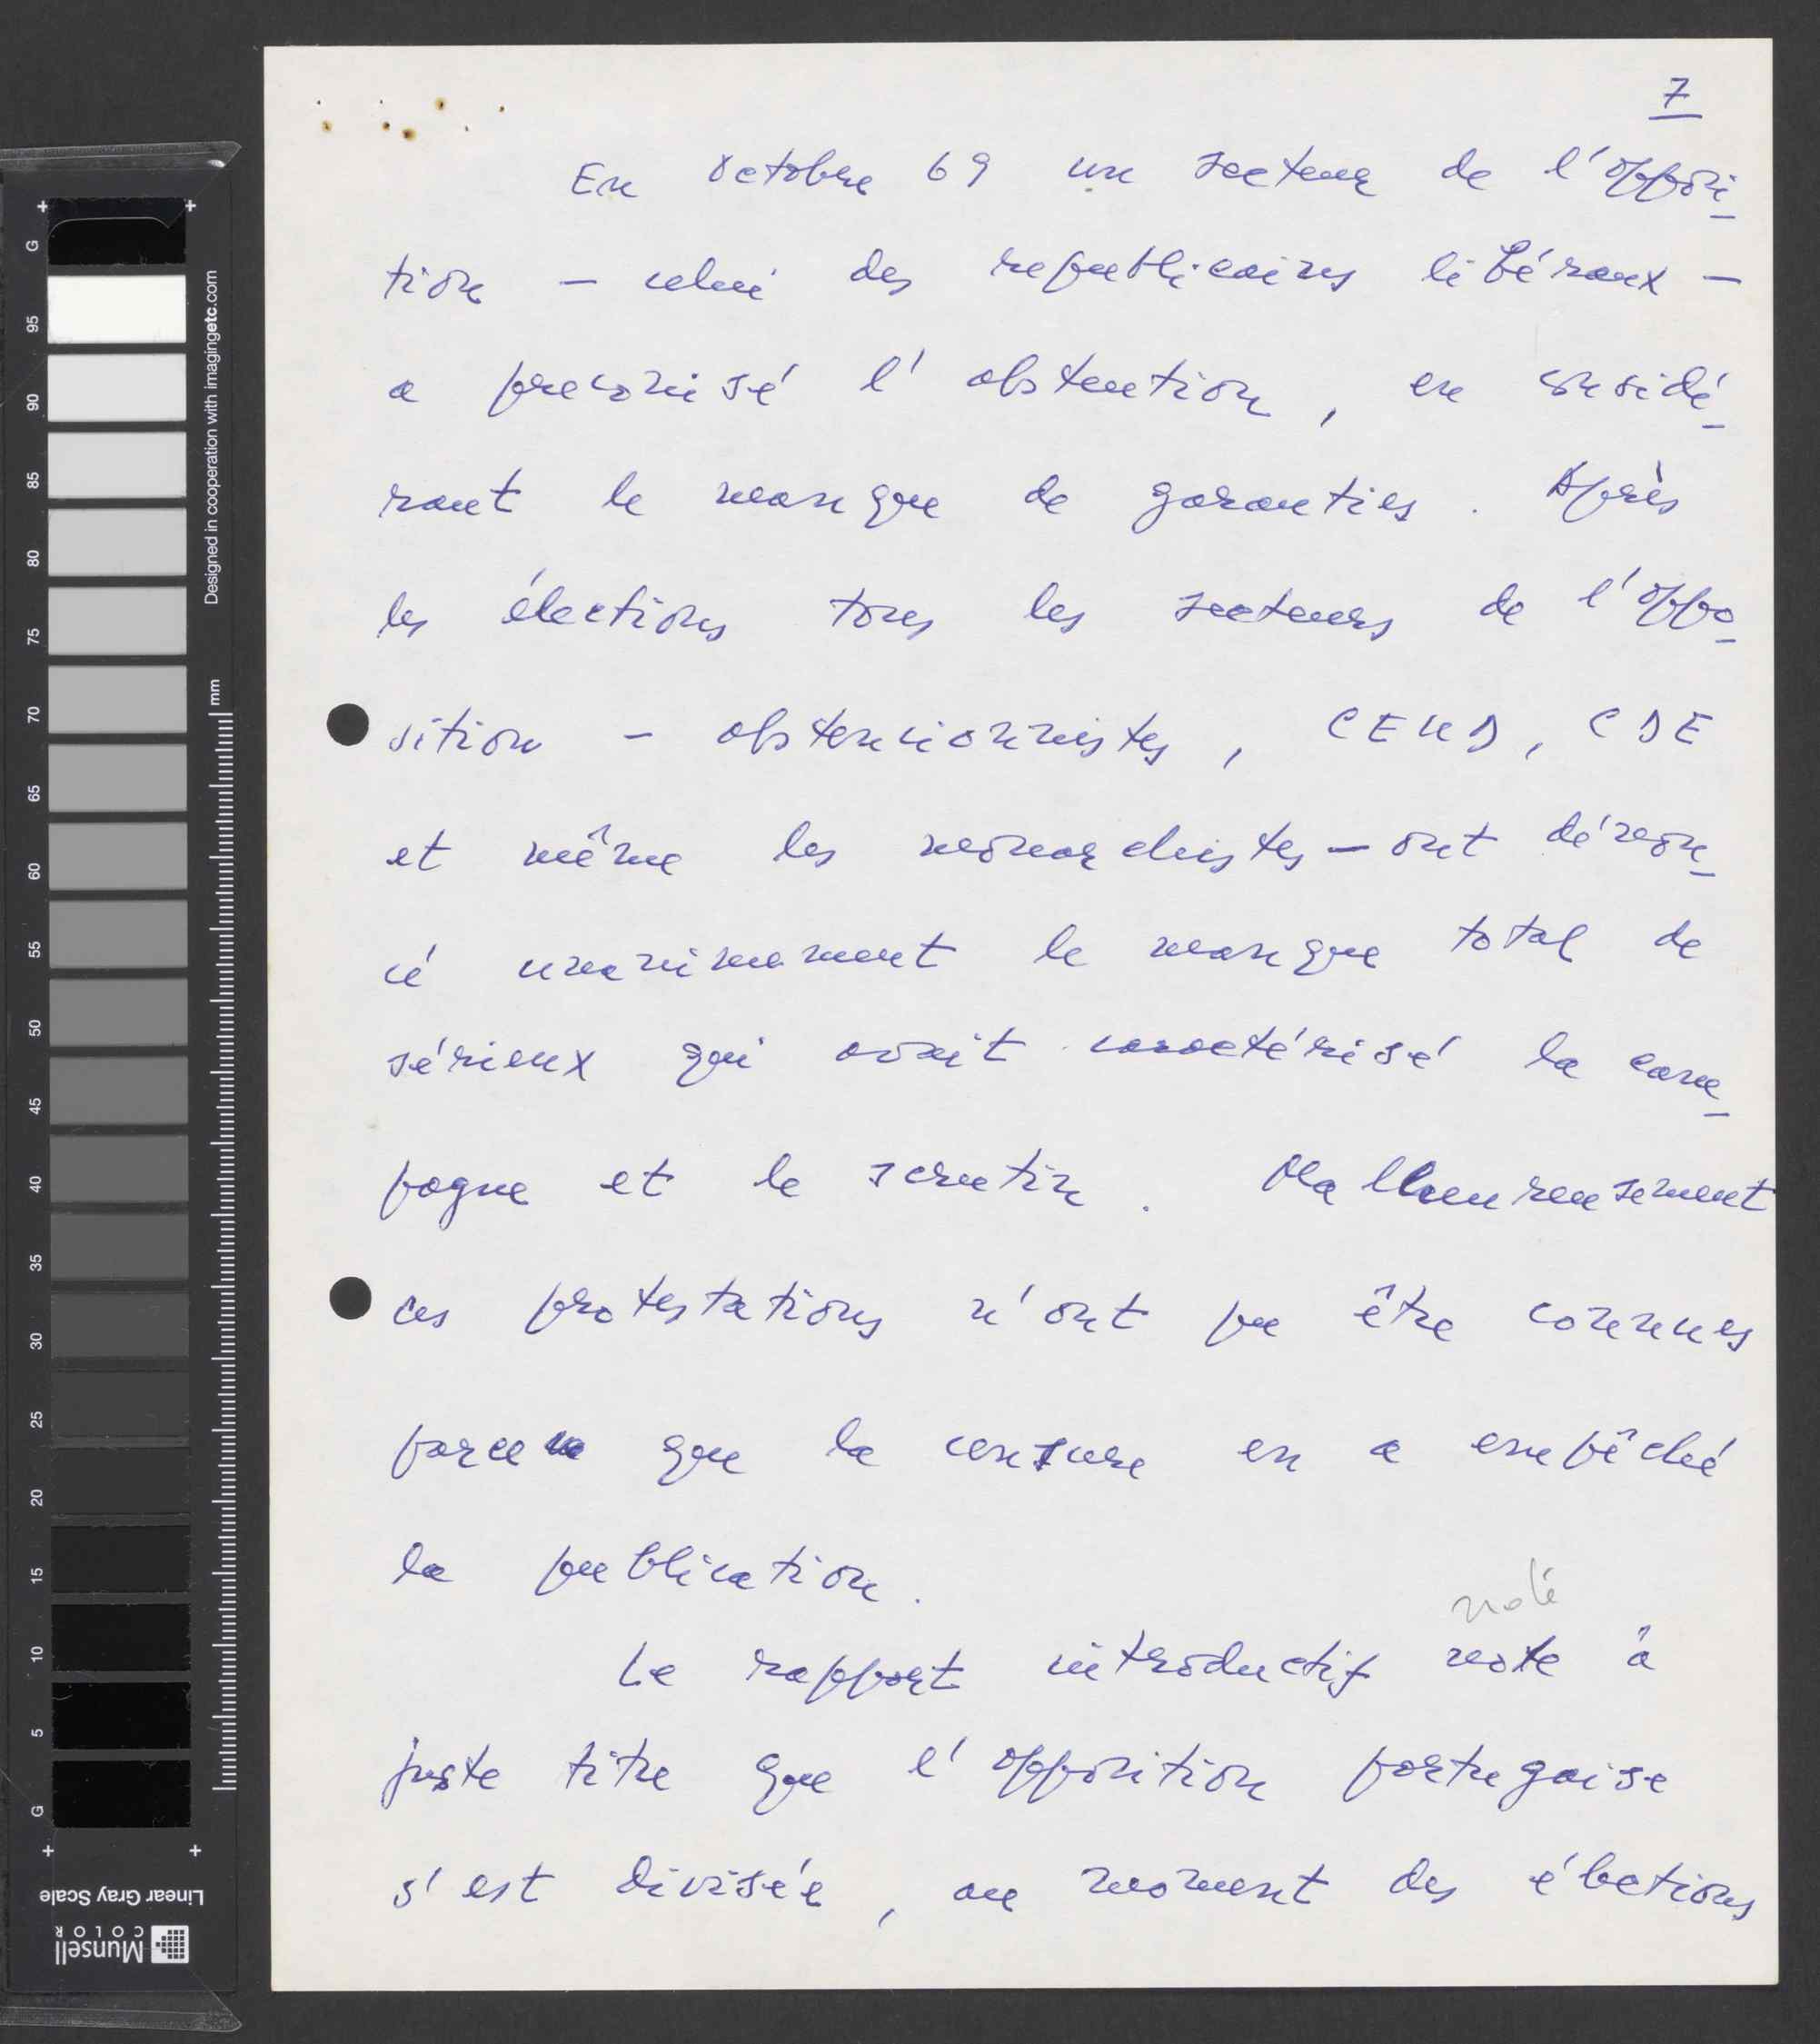 7
En octobre 69 un secteur de l'opposi-
tion — celui des republicains libéraux —
a preconisé l'abstention, en considé-
rant le manque de garanties. Après
les élections tous les secteurs de l'oppo-
sition - abstencionnistes, CEUD, CDE
et même les monarchistes — ont dénon-
cé unanimement le manque total de
sérieux qui avait caractérisé la cam-
pagne et le scrutin. Malheureusement
ces protestations n'ont pu être connues
parce que la censure en a empêché
la publication.
noté
Le rapport introductif note à
juste titre que l'opposition portugaise
s'est divisée, au moment des élections
+ +
G
95
90
85
80
75
70
65
60
55
50
45
40
35
30
25
20
15
10
5
G
+ +
mm
Designed in cooperation with imagingetc.com
Linear Gray Scale
Munsell
COLOR